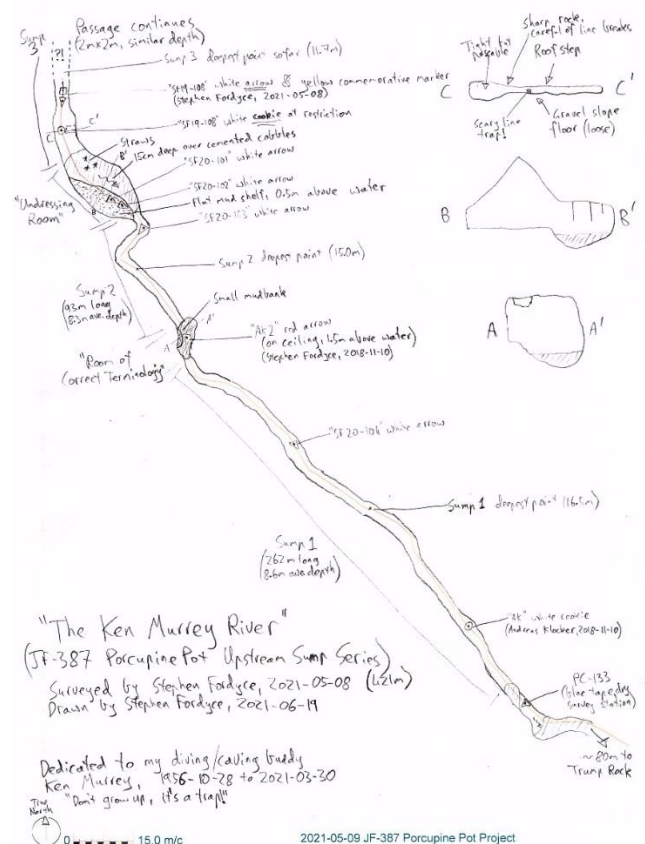 Sump
3
Passage continues
(2m x 2m, similar depth)
?!
Sump 3 deepest point so far (11.7m)
"SF19-108" white arrow & yellow commemorative marker
(Stephen Fordyce, 2021-05-08)
C'
C
"SF19-108" white cookie at restriction
Straws
B'
15cm deep over cemented cobbles
"SF20-101" white arrow
"SF20-102" white arrow
Flat mud shelf, 0.5m above water
"SF20-103" white arrow
"Undressing
Room"
B
Sump 2 deepest point (15.0m)
Sump 2
(93m long
8.3m ave. depth)
Small mudbank
A'
A
"AK2" red arrow
(on ceiling, 1.5m above water)
(Stephen Fordyce, 2018-11-10)
"Room of
Correct Terminology"
"SF20-104" white arrow
Sump 1 deepest point (16.5m)
Sump 1
(262m long
8.6m ave. depth)
"AK" white cookie
(Andreas Klocker, 2018-11-10)
PC-133
(blue tape, dry
survey station)
~80m to
Trump Rock
Sharp rock,
careful of line breaks
Tight but
passable
Roof step
C
C'
Scary line
trap!
Gravel slope
floor (loose)
B
B'
A
A'
"The Ken Murrey River"
(JF-387 Porcupine Pot Upstream Sump Series)
Surveyed by Stephen Fordyce, 2021-05-08 (421m)
Drawn by Stephen Fordyce, 2021-06-19
Dedicated to my diving/caving buddy
Ken Murrey, 1956-10-28 to 2021-03-30
"Don't grow up, it's a trap!"
True
North
0 15.0 m/c
2021-05-09 JF-387 Porcupine Pot Project